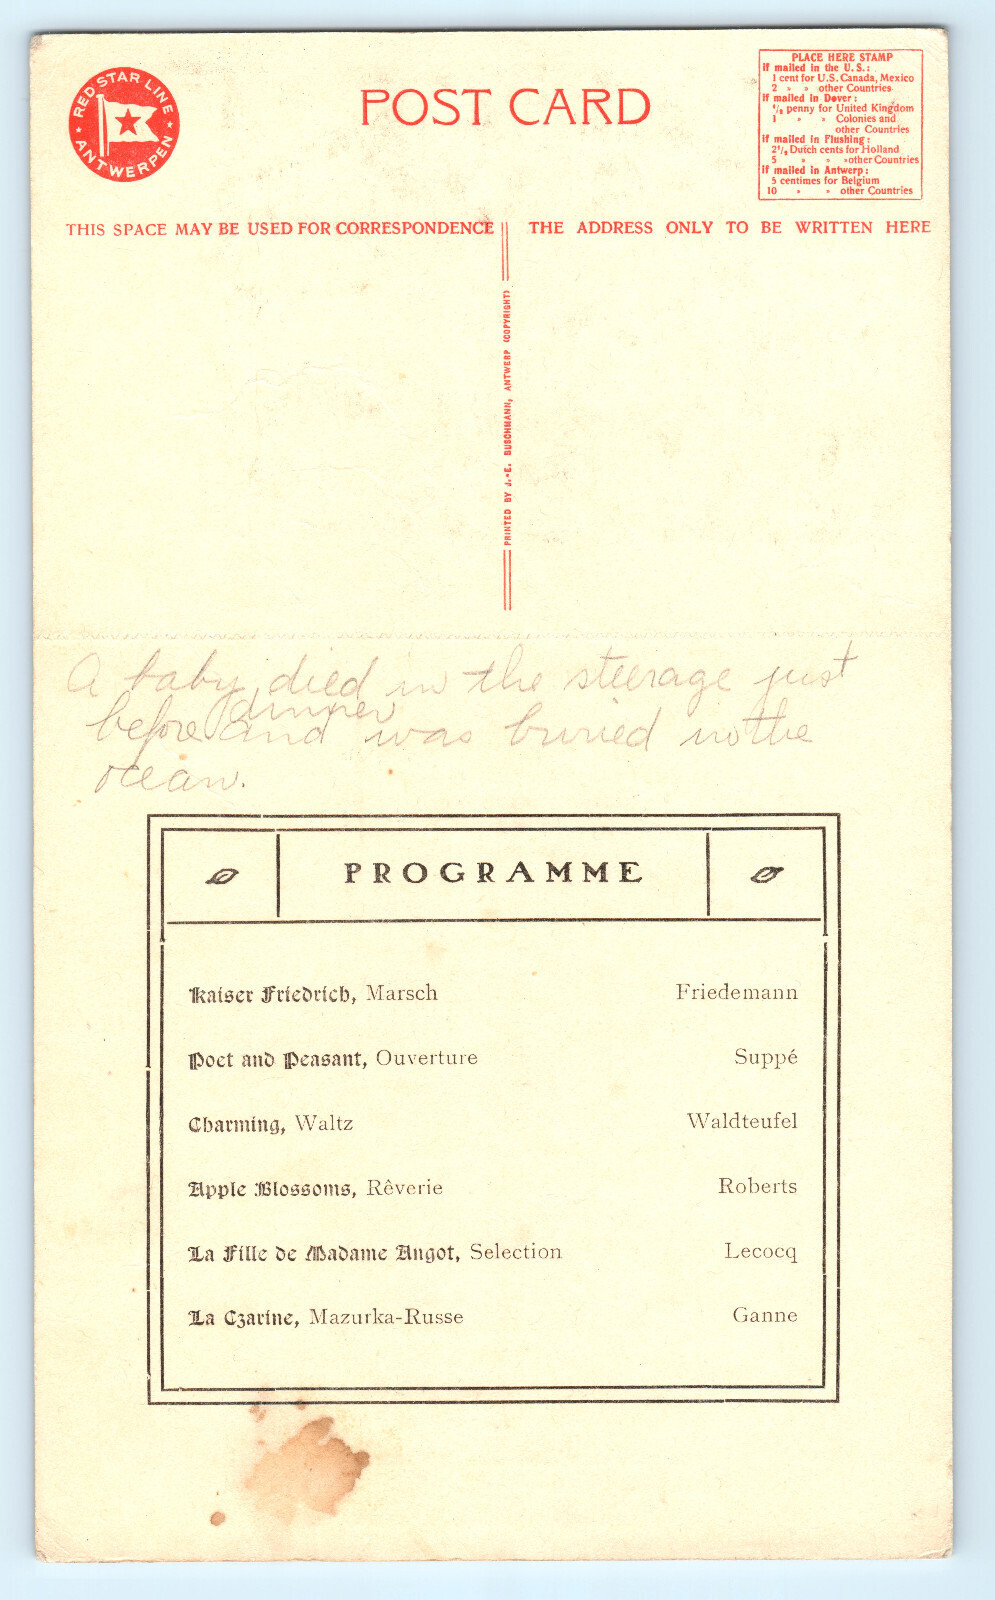 RED STAR LINE
ANTWERPEN
POST CARD
PLACE HERE STAMP
If mailed in the U.S.:
1 cent for U.S. Canada, Mexico
2 » » other Countries
If mailed in Dover:
1/2 penny for United Kingdom
1 » » Colonies and
other Countries
If mailed in Flushing:
2 1/2 Dutch cents for Holland
5 » » » other Countries
If mailed in Antwerp:
5 centimes for Belgium
10 » » other Countries
THIS SPACE MAY BE USED FOR CORRESPONDENCE
THE ADDRESS ONLY TO BE WRITTEN HERE
PRINTED BY J.-E. BUSCHMANN, ANTWERP (COPYRIGHT)
A baby died in the steerage just
before dinner and was buried in the
ocean.
PROGRAMME
Kaiser Friedrich, Marsch Friedemann
Poet and Peasant, Ouverture Suppé
Charming, Waltz Waldteufel
Apple Blossoms, Rêverie Roberts
La Fille de Madame Angot, Selection Lecocq
La Czarine, Mazurka-Russe Ganne